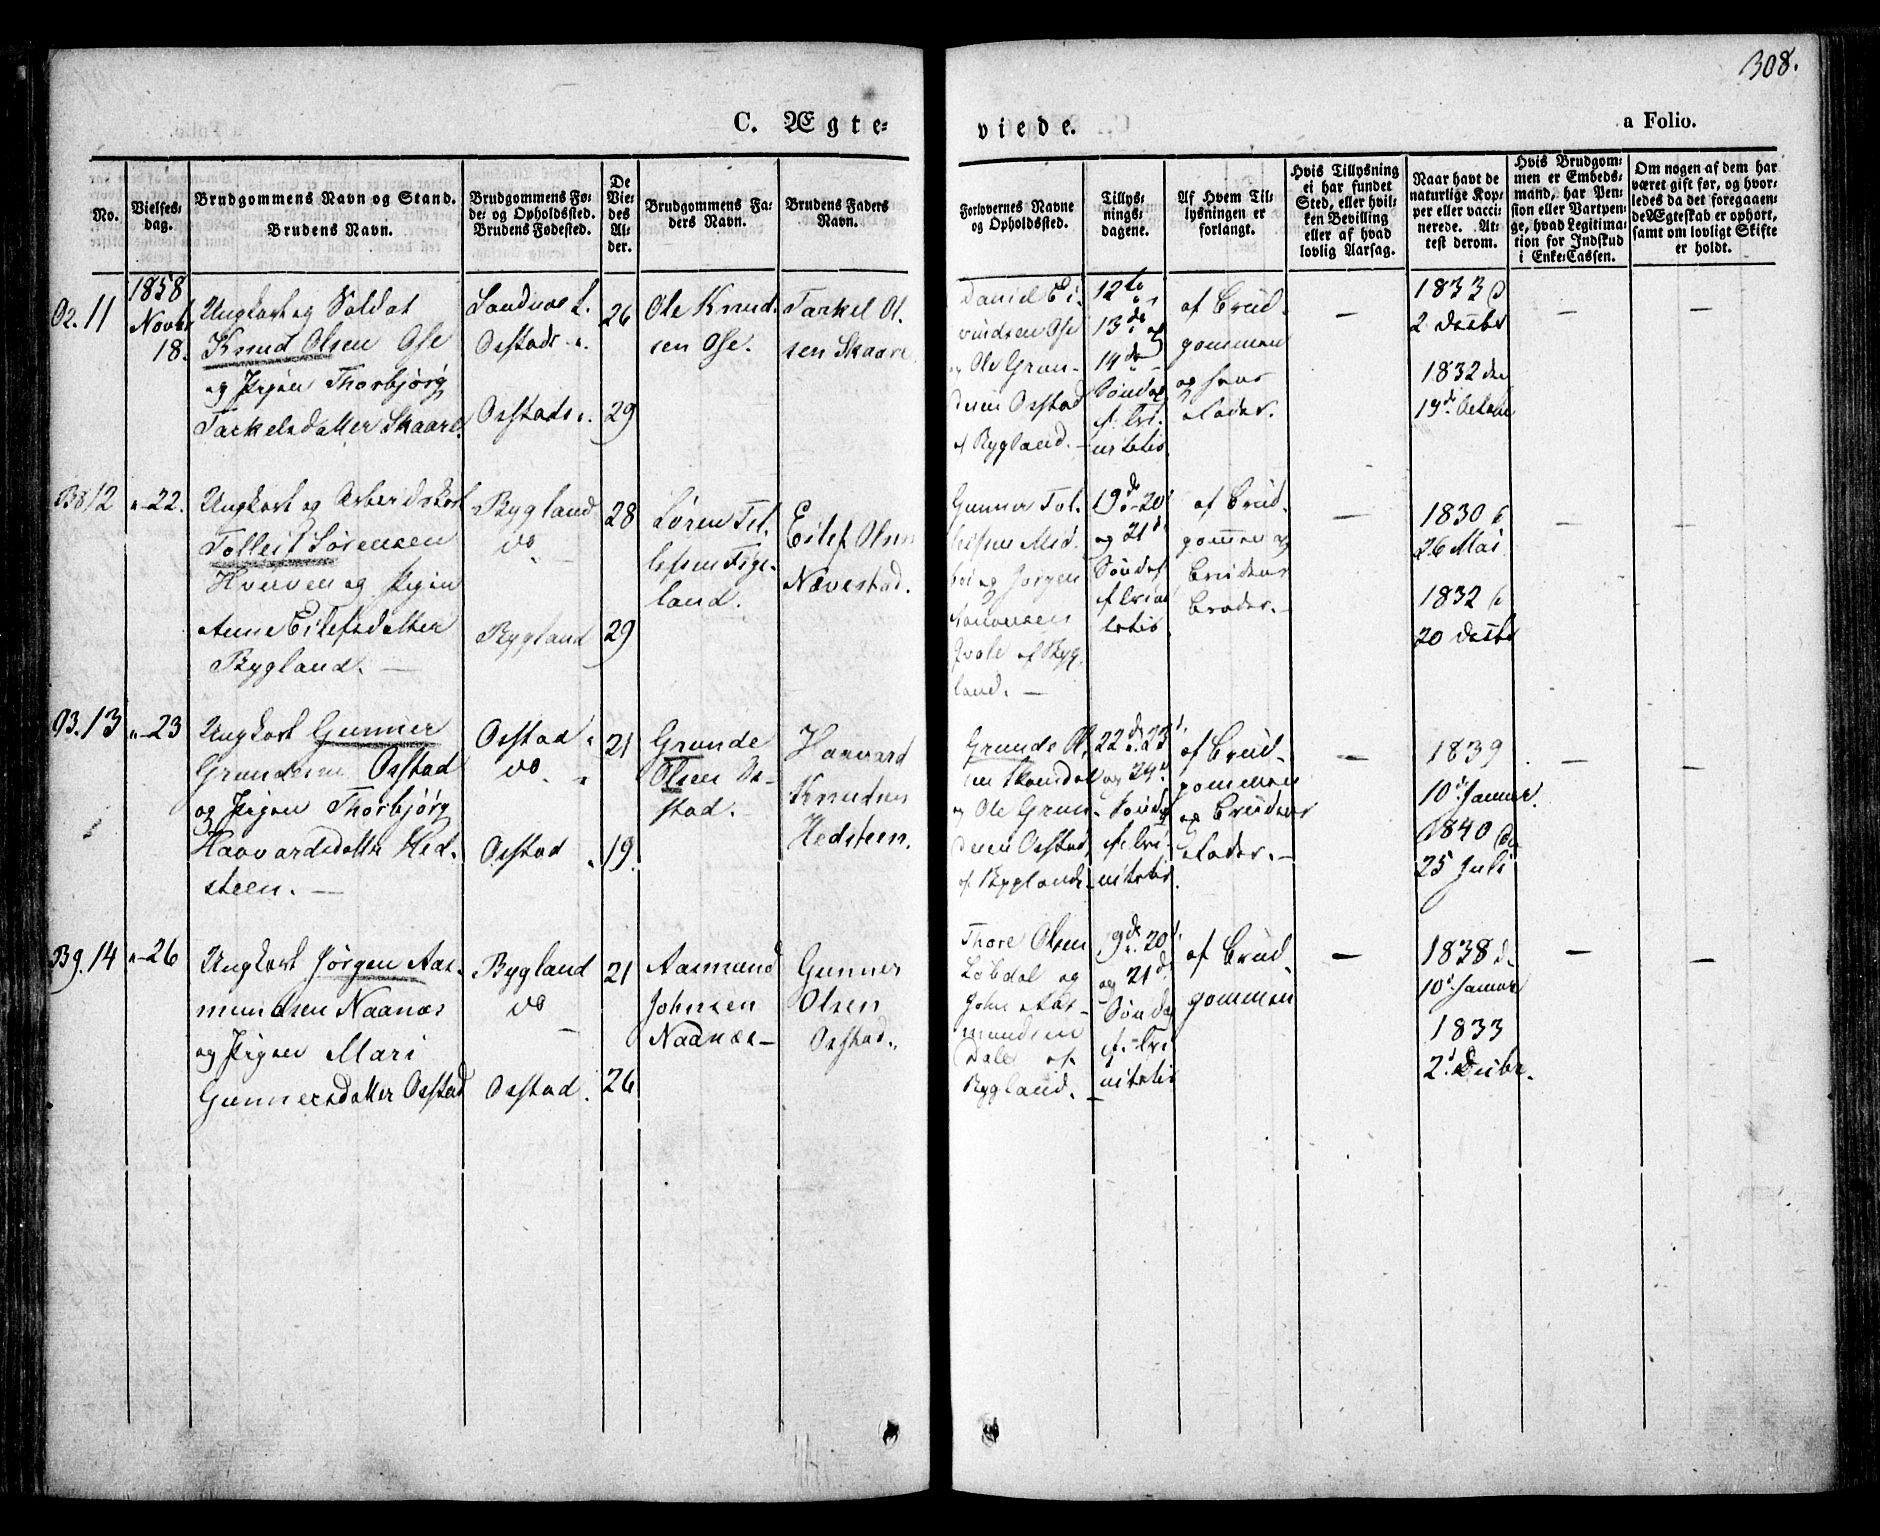 308.
C. Ægte-
viede.
a Folio.
No.
Vielses-
dag.
Brudgommens Navn og Stand.
Brudens Navn.
Brudgommens Fø-
de- og Opholdssted.
Brudens Fødested.
De
Vie-
des
Al-
der.
Brudgommens Fa-
ders Navn.
Brudens Faders
Navn.
Forlovernes Navne
og Opholdssted.
Tillys-
nings-
dagene.
Af Hvem Til-
lysningen er
forlangt.
Hvis Tillysning
ei har fundet
Sted, eller hvil-
ken Bevilling
eller af hvad
lovlig Aarsag.
Naar havt de
naturlige Kop-
per eller vacci-
nerede. At-
test derom.
Hvis Brudgom-
men er Embeds-
mand, har Pen-
sion eller Vartpen-
ge, hvad Legitima-
tion for Indskud
i Enke-Cassen.
Om nogen af dem har
været gift før, og hvor-
ledes da det foregaaen-
de Ægteskab er ophørt,
samt om lovligt Skifte
er holdt.
Os. 11
1858
Novbr
18.
Ungkarl og Soldat
Knud Olsen Ose
og Pigen Thorbjørg
Tarkelsdatter Skaare.
Sandnæs
Osstads
Osstads
26
29
Ole Knud-
sen Ose.
Tarkel Ol-
sen Skaare
Daniel Ei-
vindsen Ose
og Ole Grun-
desen Osstad
af Bygland.
12te
13de og
14de
Søndag
f. Tri-
nitatis
af Brud-
gommen
og hans
Fader.
—
1833 d
2 Decbr
1832 den
19d Octobr
—
—
By 12
"-22.
Ungkarl og Arbeidskarl
Tolleif Sørensen
Hverven og Pigen
Anne Eilefsdatter
Bygland. —
Bygland
do
Bygland
28
29
Søren Tol-
lefsen Fige-
land.
Eilef Olsen
Nævestad.
Gunner Tol-
leifsen Mid-
bøi og Jørgen
Qvale af Byg-
land. —
19de 20d
og 21d
Sønd ef
f Trini
tatis
af Brud-
gommen og
Brudens
Broder. —
—
1830 d
26 Mai
1832 d
20 Decbr
—
—
Os. 13
"-23
Ungkarl Gunner
Grundesen Osstad
og Pigen Thorbjørg
Haavardsdatter Hed-
steen. —
Osstad
do
Osstad
21
19.
Grunde
Olsen Os-
stad.
Haavard
Knudsen
Hedsteen.
Grunde Ol-
sen Skomedal
og Ole Grun-
desen Osstad
af Bygland. —
22d 23d
og 24d
Sønda
ef. Tri-
nitatis.
af Brud-
gommen
og Brudens
Fader. —
—
1839
10d Januar.
1840 da
25 Juli
—
—
By. 14
"-26
Ungkarl Jørgen Aas-
mundsen Naanæs
og Pigen Mari
Gunnersdatter Osstad
Bygland
do
—
Osstad.
21
26
Aasmund
Johnsen
Naanæs—
Gunner
Olsen
Osstad.
Thore Olsen
Løbdal og
John Aas-
mundsen
Dale af
Bygland. —
9de 20d
og 21d
Sønda
ef. Tri-
nitatis
af Brud-
gommen
—
1838 d
10d Januar
1833
2d Decbr.
—
—